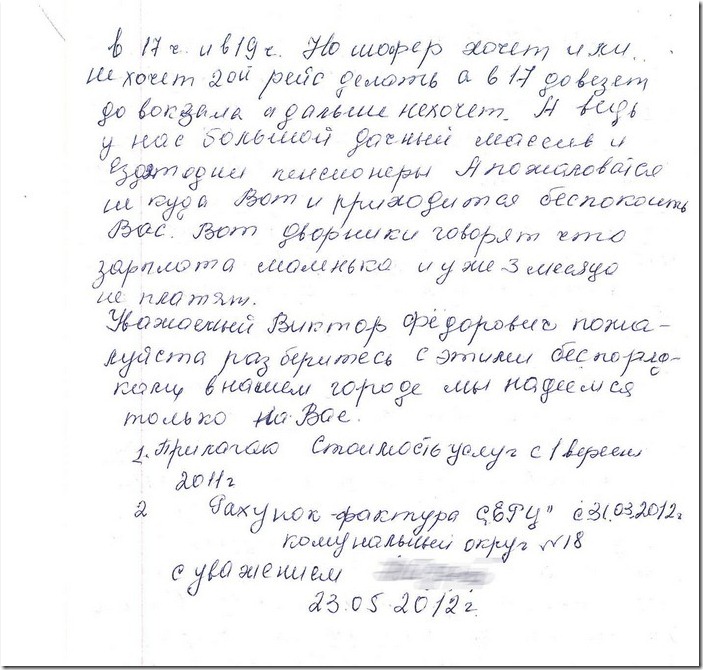 в 17 ч. и в 19 ч. Но шофер хочет или
не хочет 2ой рейс делать а в 17 довезет
до вокзала а дальше нехочет. А ведь
у нас большой дачный массив и
ездят одни пенсионеры А пожаловатся
не куда Вот и приходится беспокоить
Вас. Вот дворники говорят что
зарплота маленька и уже 3 месяца
не платят.
Уважаемый Виктор Федорович пожа-
луйста разберитесь с этими беспоряд-
ками в нашем городе мы надеемся
только на Вас.
1. Прилагаю Стоимость услуг с 1 вересня
2011г
2 Рахунок-фактура "ЕРЦ" с 31.03.2012г
комунальный округ №18
с уважением
23.05.2012г.